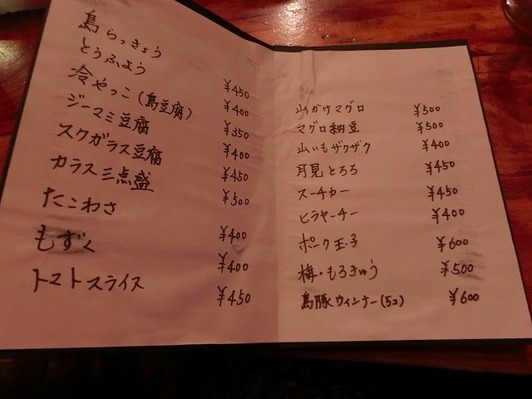 島らっきょう ¥450
とうふよう ¥400
冷やっこ(島豆腐) ¥350
ジーマミ豆腐 ¥400
スクガラス豆腐 ¥450
カラス三点盛 ¥500
たこわさ ¥400
もずく ¥400
トマトスライス ¥450
山かけマグロ ¥500
マグロ納豆 ¥500
山いもザクザク ¥400
月見とろろ ¥450
スーチカー ¥450
ヒラヤーチー ¥400
ポーク玉子 ¥600
梅・もろきゅう ¥500
島豚ウィンナー(5コ) ¥600